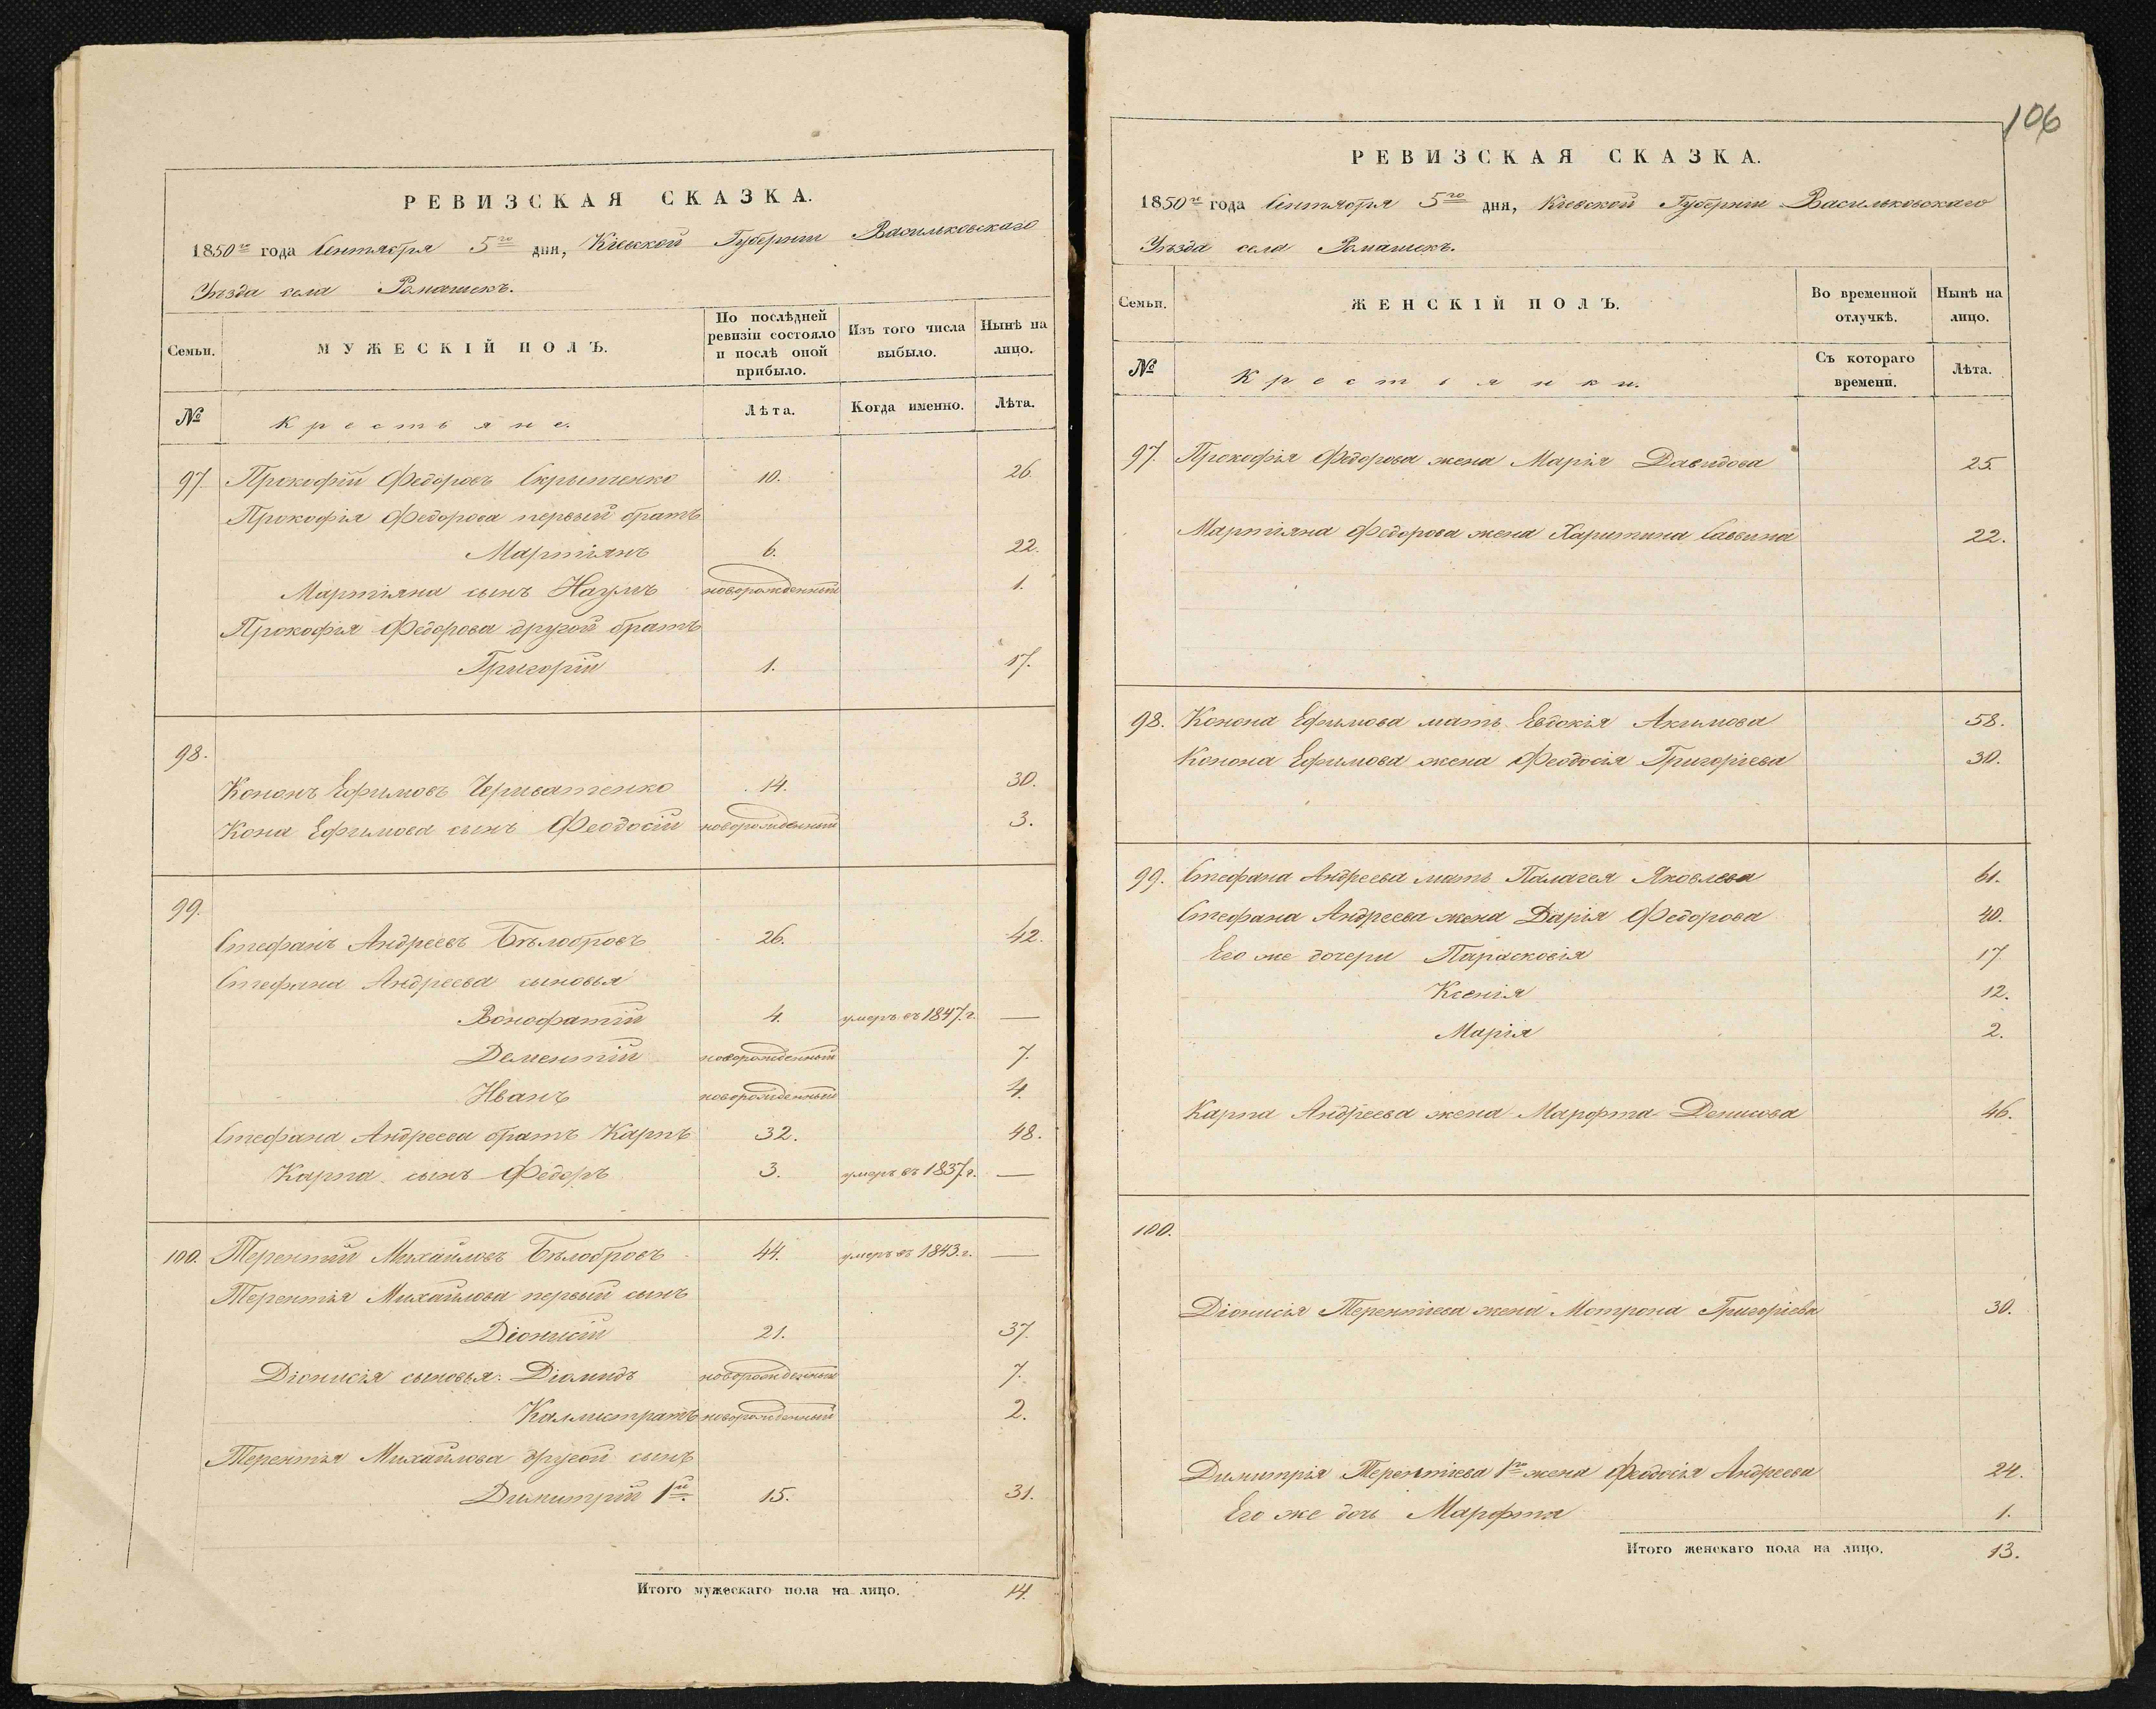 РЕВИЗСКАЯ СКАЗКА.
1850го года Сентября 5го дня, Кіевской Губерніи Васильковскаго
Уѣзда села Ромашекъ.
Семьи.
МУЖЕСКІЙ ПОЛЪ.
По послѣдней ревизіи состояло и послѣ оной прибыло.
Изъ того числа выбыло.
Нынѣ на лицо.
№
Крестьяне.
Лѣта.
Когда именно.
Лѣта.
97. Прокофій Федоровъ Скрыпченко 10. 26.
Прокофія Федорова первый братъ
Мартіянъ 6. 22.
Мартіяна сынъ Наумъ новорожденный 1.
Прокофія Федорова другой братъ
Григорій 1. 17.
98.
Кононъ Ефимовъ Черватенко 14. 30.
Кона Ефимова сынъ Феодосій новорожденный 3.
99.
Стефанъ Андреевъ Бѣлобровъ 26. 42.
Стефана Андреева сыновья
Вонофатій 4. умеръ въ 1847.г. —
Дементій новорожденный 7.
Иванъ новорожденный 4.
Стефана Андреева братъ Карпъ 32. 48.
Карпа сынъ Федоръ 3. умеръ въ 1837.г. —
100. Терентій Михайловъ Бѣлобровъ 44. умеръ въ 1843.г. —
Терентія Михайлова первый сынъ
Діонисій 21. 37.
Діонисія сыновья: Діомидъ новорожденный 7.
Калистратъ новорожденный 2.
Терентія Михайлова другой сынъ
Димитрій 1й. 15. 31.
Итого мужескаго пола на лицо. 14.
106
РЕВИЗСКАЯ СКАЗКА.
1850го года Сентября 5го дня, Кіевской Губерніи Васильковскаго
Уѣзда села Ромашекъ.
Семьи.
ЖЕНСКІЙ ПОЛЪ.
Во временной отлучкѣ.
Нынѣ на лицо.
№
Крестьянки.
Съ котораго времени.
Лѣта.
97. Прокофія Федорова жена Марія Давидова 25.
Мартіяна Федорова жена Харитина Саввина 22.
98. Конона Ефимова мать Евдокія Акимова 58.
Конона Ефимова жена Феодосія Григоріева 30.
99. Стефана Андреева мать Палагея Яковлева 61.
Стефана Андреева жена Дарія Федорова 40.
Его же дочери Парасковія 17
Ксенія 12.
Марія 2.
Карпа Андреева жена Марфта Денисова 46.
100.
Діонисія Терентіева жена Мотрона Григоріева 30.
Димитрія Терентіева 1го жена Феодосія Андреева 24.
Его же дочь Марфта 1.
Итого женскаго пола на лицо. 13.